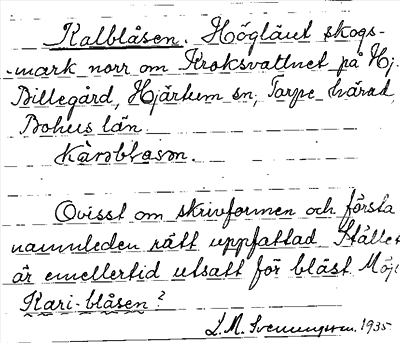 Kalblåsen. Högläut skogs-
mark norr om Kroksvattnet på Hj.
Billegård, Hjärtum sn, Torpe härad
Bohus län
Ovisst om skrivformen och första
namnleden rätt uppfattad Stället
är emellertid utsatt för blåst Möj
Kari-blåsen?
L.M. Svenungsson. 1935